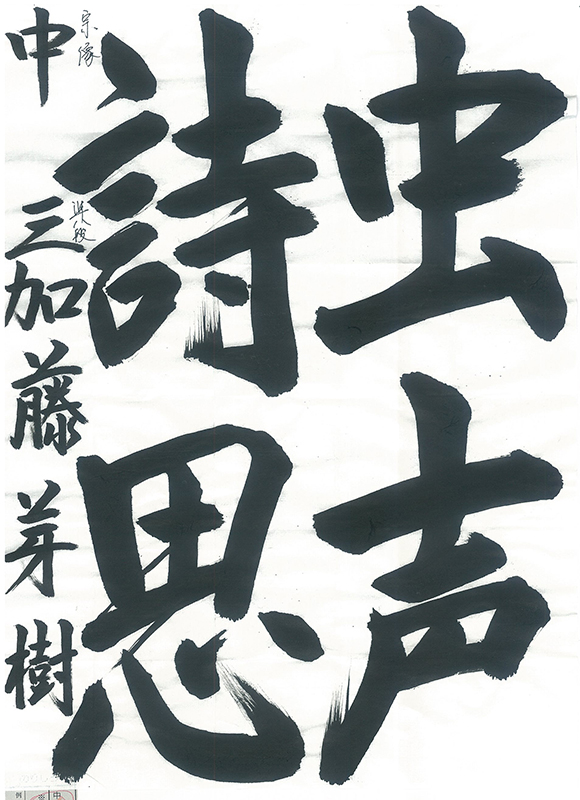 虫声
詩思
中三 加藤芽樹
宗像